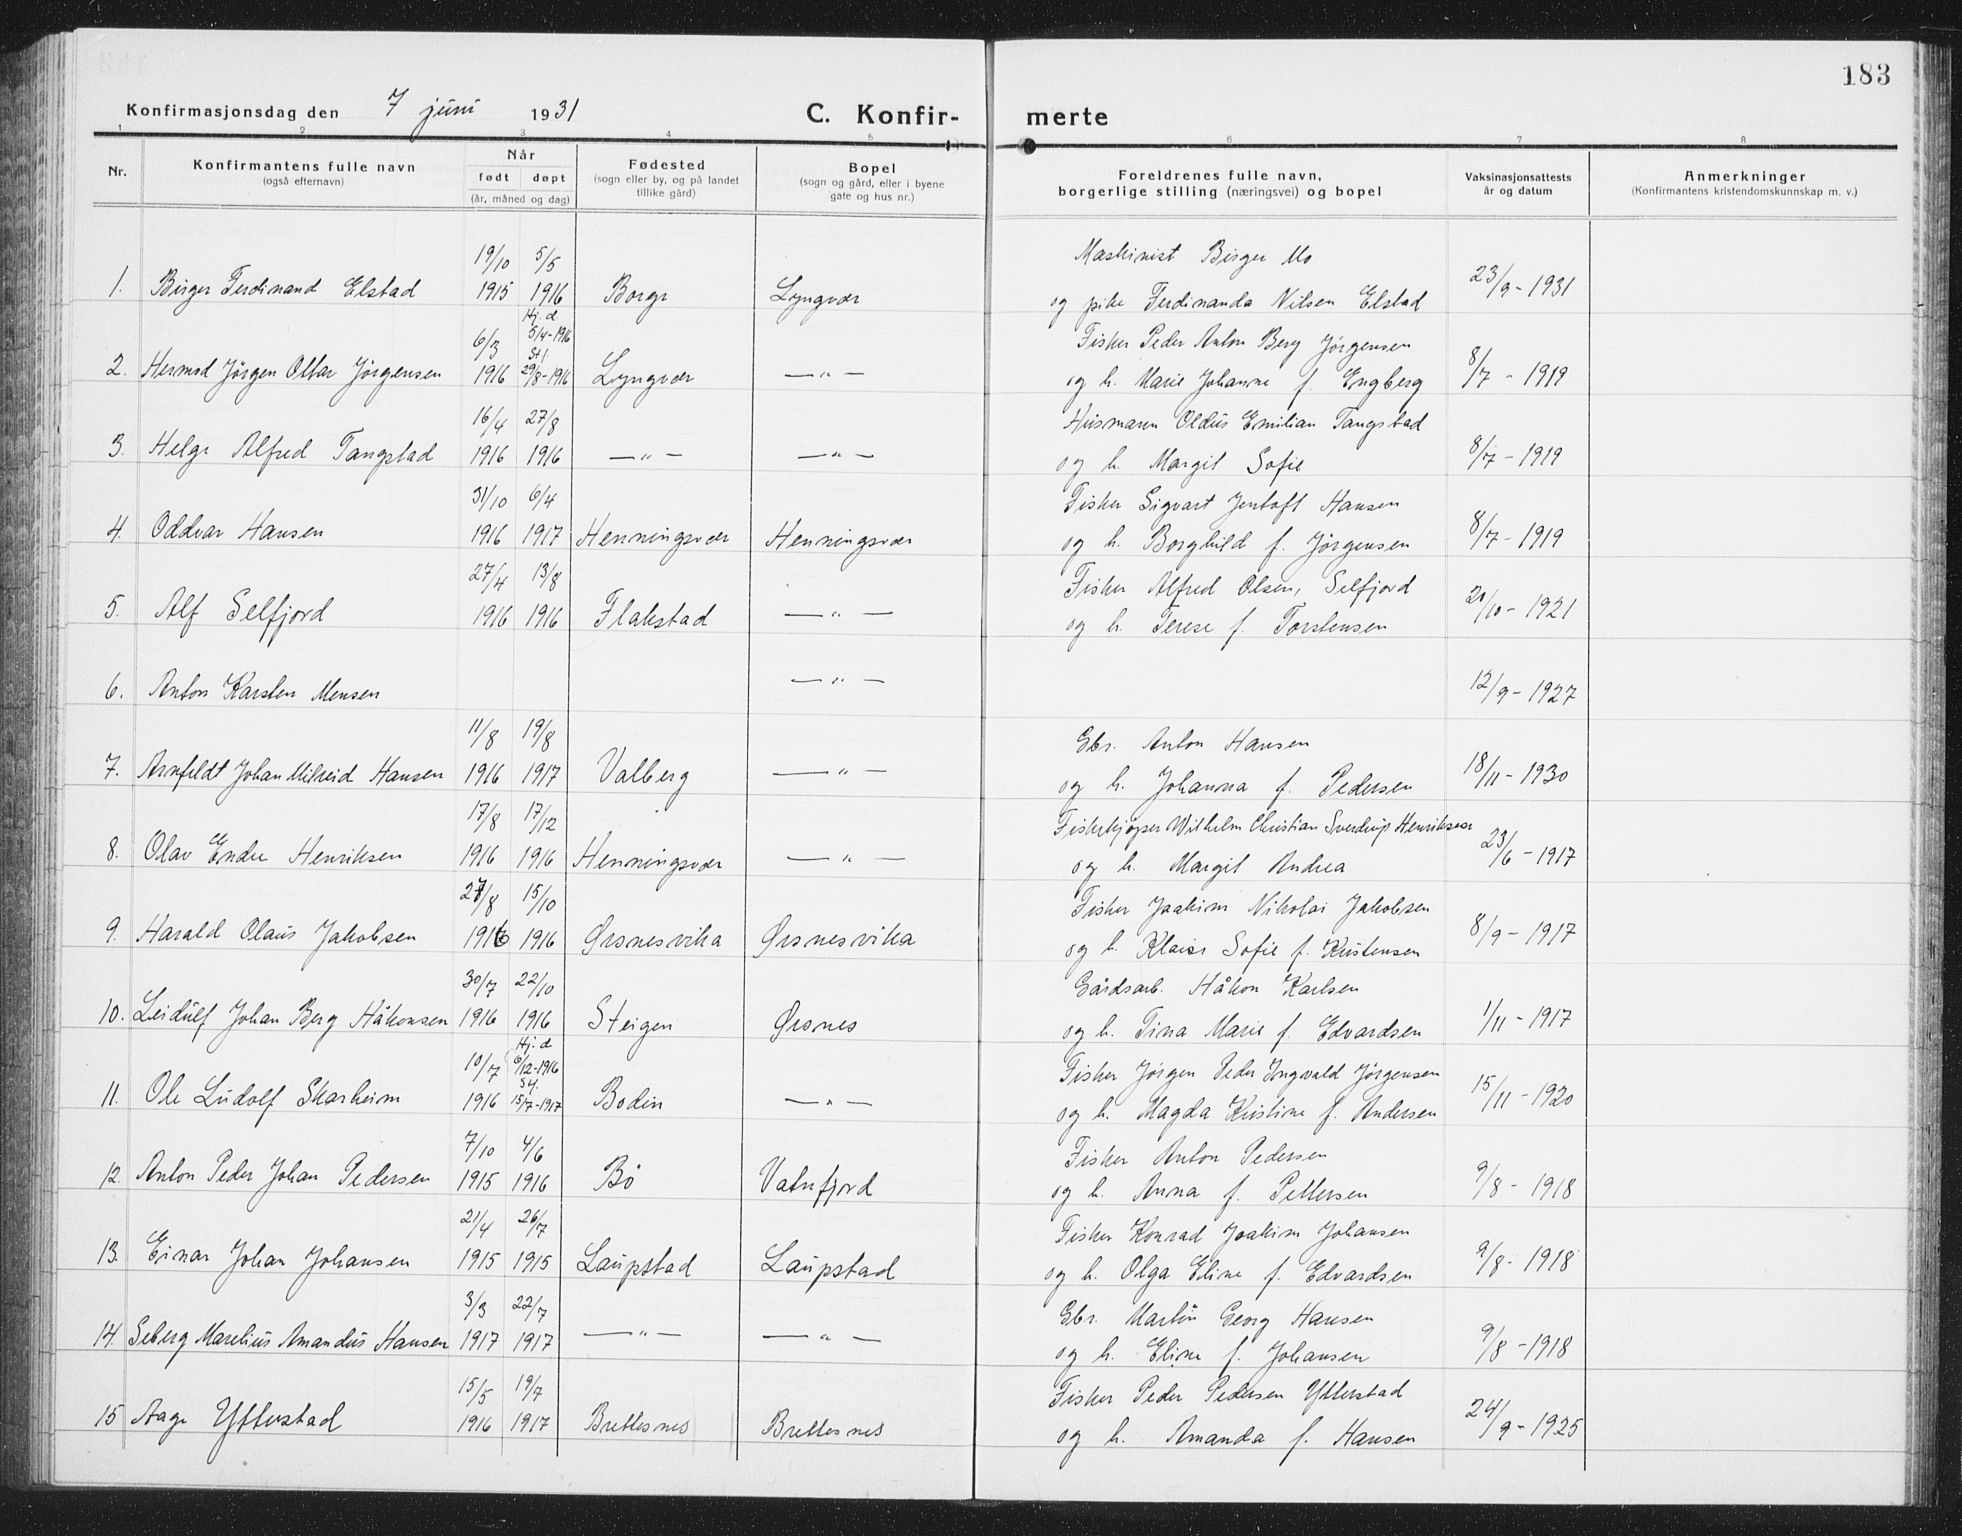 183
Konfirmasjonsdag den 7 juni 1931
C. Konfir-
merte
1 2 3 4 5 6 7 8
Nr.
Konfirmantens fulle navn
(også efternavn)
Når
født døpt
(år, måned og dag)
Fødested
(sogn eller by, og på landet
tillike gård)
Bopel
(sogn og gård, eller i byene
gate og hus nr.)
Foreldrenes fulle navn,
borgerlige stilling (næringsvei) og bopel
Vaksinasjonsattests
år og datum
Anmerkninger
(Konfirmantens kristendomskunnskap m. v.)
19/10 5/5 Maskinist Birger Mo
1. Birger Ferdinand Elstad 1915 1916 Borge Lyngvær og pike Ferdinanda Nilsen Elstad 23/9-1931
Hj. d.
6/3 5/4-1916 Fisker Peder Anton Berg Jörgensen
St f.
2. Hermod Jörgen Ottar Jörgensen 1916 29/8-1916 Lyngvær —"— og h. Marie Johanne f. Engberg 8/7 - 1919
16/4 27/8 Husmann Oldus Emilian Tangstad
3. Helge Alfred Tangstad 1916 1916 —"— —"— og h. Margit Sofie 8/7-1919
31/10 6/4 Fisker Sigvart Jentoft Hansen
4. Oddvar Hansen 1916 1917 Henningsvær Henningsvær og h. Borghild f. Jörgensen 8/7-1919
27/4 13/8 Fisker Alfred Olsen, Selfjord
5. Alf Selfjord 1916 1916 Flakstad —"— og h. Terese f. Torstensen 20/10-1921
6. Anton Karsten Mensen —"— 12/9-1927
11/8 19/8 Gbr. Anton Hansen
7. Arnfeldt Johan Milreid Hansen 1916 1917 Valberg —"— og h. Johanna f. Pedersen 18/11-1930
17/8 17/12 Fiskekjøper Wilhelm Christian Sverdrup Henriksen
8. Olav Endre Henriksen 1916 1916 Henningsvær —"— og h. Margit Andrea 23/6-1917
27/8 15/10 Fisker Joakim Nikolai Jakobsen
9. Harald Olaus Jakobsen 1916 1916 Ørsnesvika Ørsnesvika og h. Klaise Sofie f. Kristensen 8/9-1917
30/7 22/10 Gårdsarb. Håkon Karlsen
10. Leidulf Johan Berg Håkonsen 1916 1916 Steigen Ørsnes og h. Tina Marie f. Edvardsen 1/11-1917
Hj. d
10/7 6/12-1916 Fisker Jörgen Peder Ingvald Jörgensen
11. Ole Ludolf Skarheim 1916 15/7-1917 Bodin —"— og h. Magda Kristine f. Andersen 15/11-1920
7/10 4/6 Fisker Anton Pedersen
12. Anton Peder Johan Pedersen 1915 1916 Bö Vatnfjord og h. Anna f. Pettersen 9/8-1918
21/4 26/7 Fisker Konrad Joakim Johansen
13. Einar Johan Johansen 1915 1915 Laupstad Laupstad og h. Olga Eline f. Edvardsen 9/8-1918
3/3 22/7 Gbr. Martin Georg Hansen
14. Seberg Marelius Amandus Hansen 1917 1917 —"— —"— og h. Eline f. Johansen 9/8-1918
15/5 19/7 Fisker Peder Pedersen Ytterstad
15 Aage Ytterstad 1916 1917 Brettesnes Brettesnes og h. Amanda f. Hansen 24/9-1925